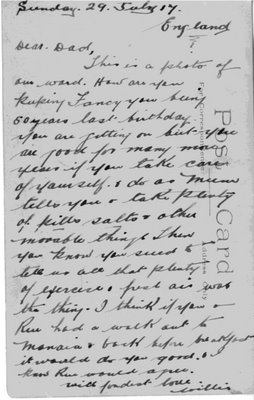 Sunday. 29. July 17.
England
Dear Dad,
This is a photo of
our ward. How are you
keeping. Fancy you being
50 years last birthday.
You are getting on but you
are good for many more
years if you take care
of yourself & do as Mum
tells you & take plenty
of pills, salts & other
movable things. Then
you know you used to
tell us all that plenty
of exercise & fresh air was
the thing. I think if you &
Reu had a walk out to
Manaia & back before breakfast
it would do you good. &
know Reu would agree.
with fondest love. Willis
Post Card
Address Only